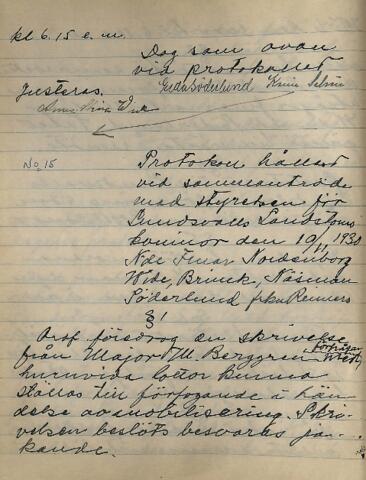 kl 6.15 e.m.
Dag som ovan
vid protokollet
Gerda Söderlund Karin
Justeras.
Anna Wide
No. 15
Protokoll hållet
vid sammanträde
med styrelsen för
Sundsvalls Landstorms
kvinnor den 19/11 1930
Nde Fruar Nordenborg
Wide, Brinck, Näsman
Söderlund frkn Renners
§ 1
Ordf. föredrog en skrivelse
från Major M. Berggren
huruvida lottor kunna
ställas till förfogande i hän
delse av mobilisering. Skri-
velsen beslöts besvaras ja-
kande.